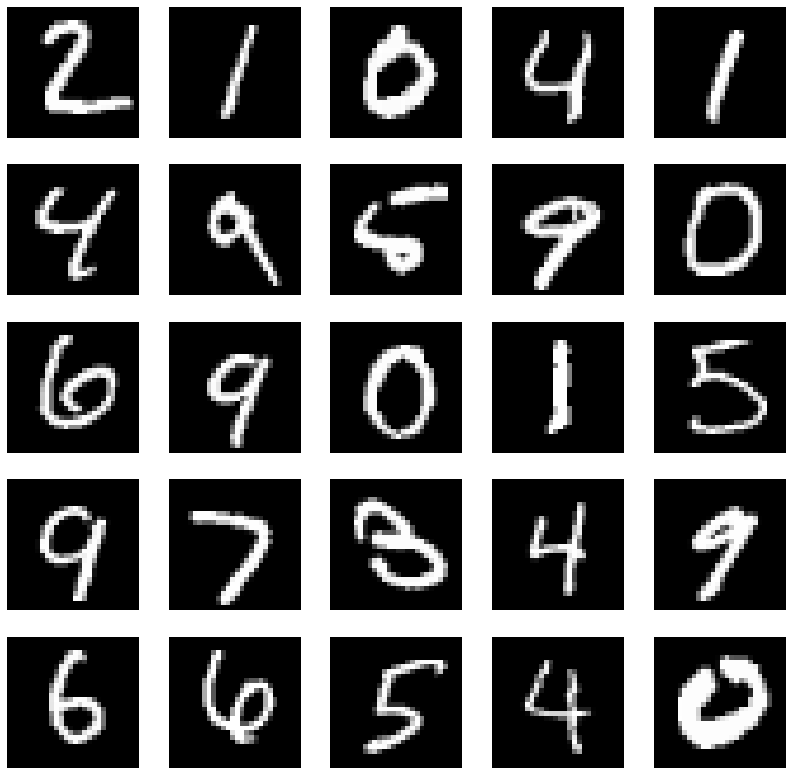 2 1 0 4 1
4 9 5 9 0
6 9 0 1 5
9 7 3 4 9
6 6 5 4 0